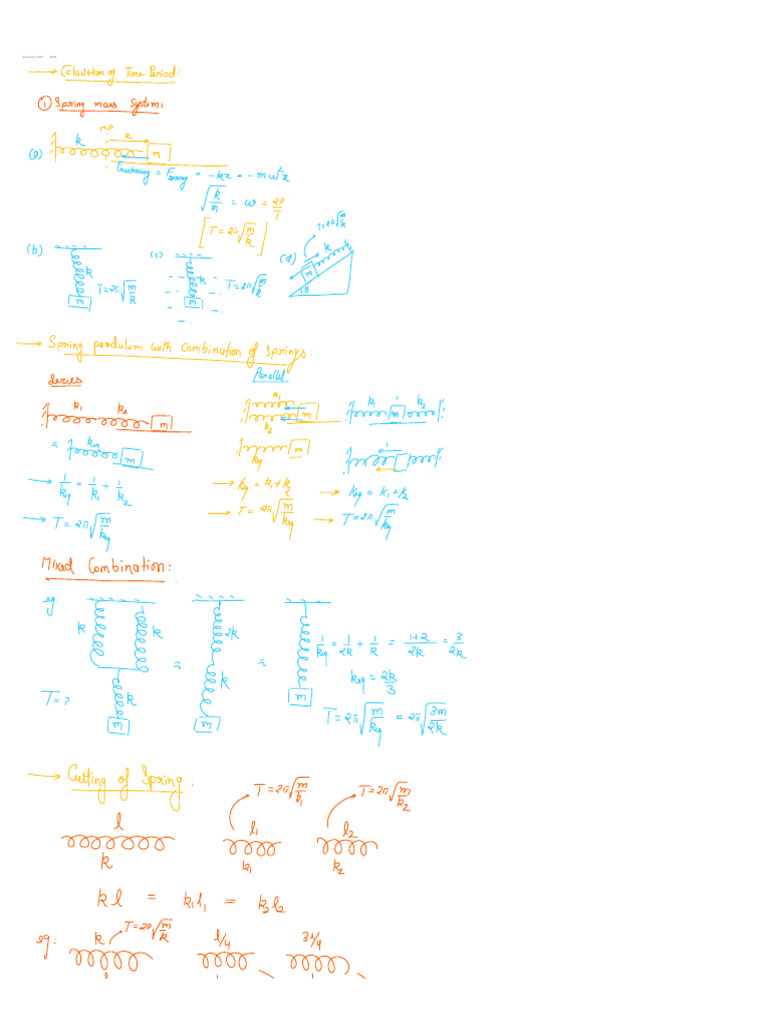 → Calculation of Time Period:
① Spring mass System:
M.P x
k
(a) m
F_restoring = F_spring = -kx = -mω²x
√(k/m) = ω = 2π/T
[T = 2π√(m/k)]
(b) k m T = 2π√(m/k)
(c) k m T = 2π√(m/k)
(d) T = 2π√(m/k) k m θ
→ Spring pendulum with Combination of Springs:
Series
k₁ k₂ m
≈ keq m
→ 1/keq = 1/k₁ + 1/k₂
→ T = 2π√(m/keq)
Parallel
k₁ k₂ m
keq m
→ keq = k₁+k₂
→ T = 2π√(m/keq)
k₁ m k₂
→ keq = k₁+k₂
→ T = 2π√(m/keq)
Mixed Combination:
eg k k k m
T = ?
≈ 2k k m
≈ m
1/keq = 1/2k + 1/k = 1+2/2k = 3/2k
keq = 2k/3
T = 2π√(m/keq) = 2π√(3m/2k)
→ Cutting of Spring:
T = 2π√(m/k₁) T = 2π√(m/k₂)
l l₁ l₂
k k₁ k₂
kl = k₁l₁ = k₂l₂
eg: k T = 2π√(m/k) l/4 3l/4